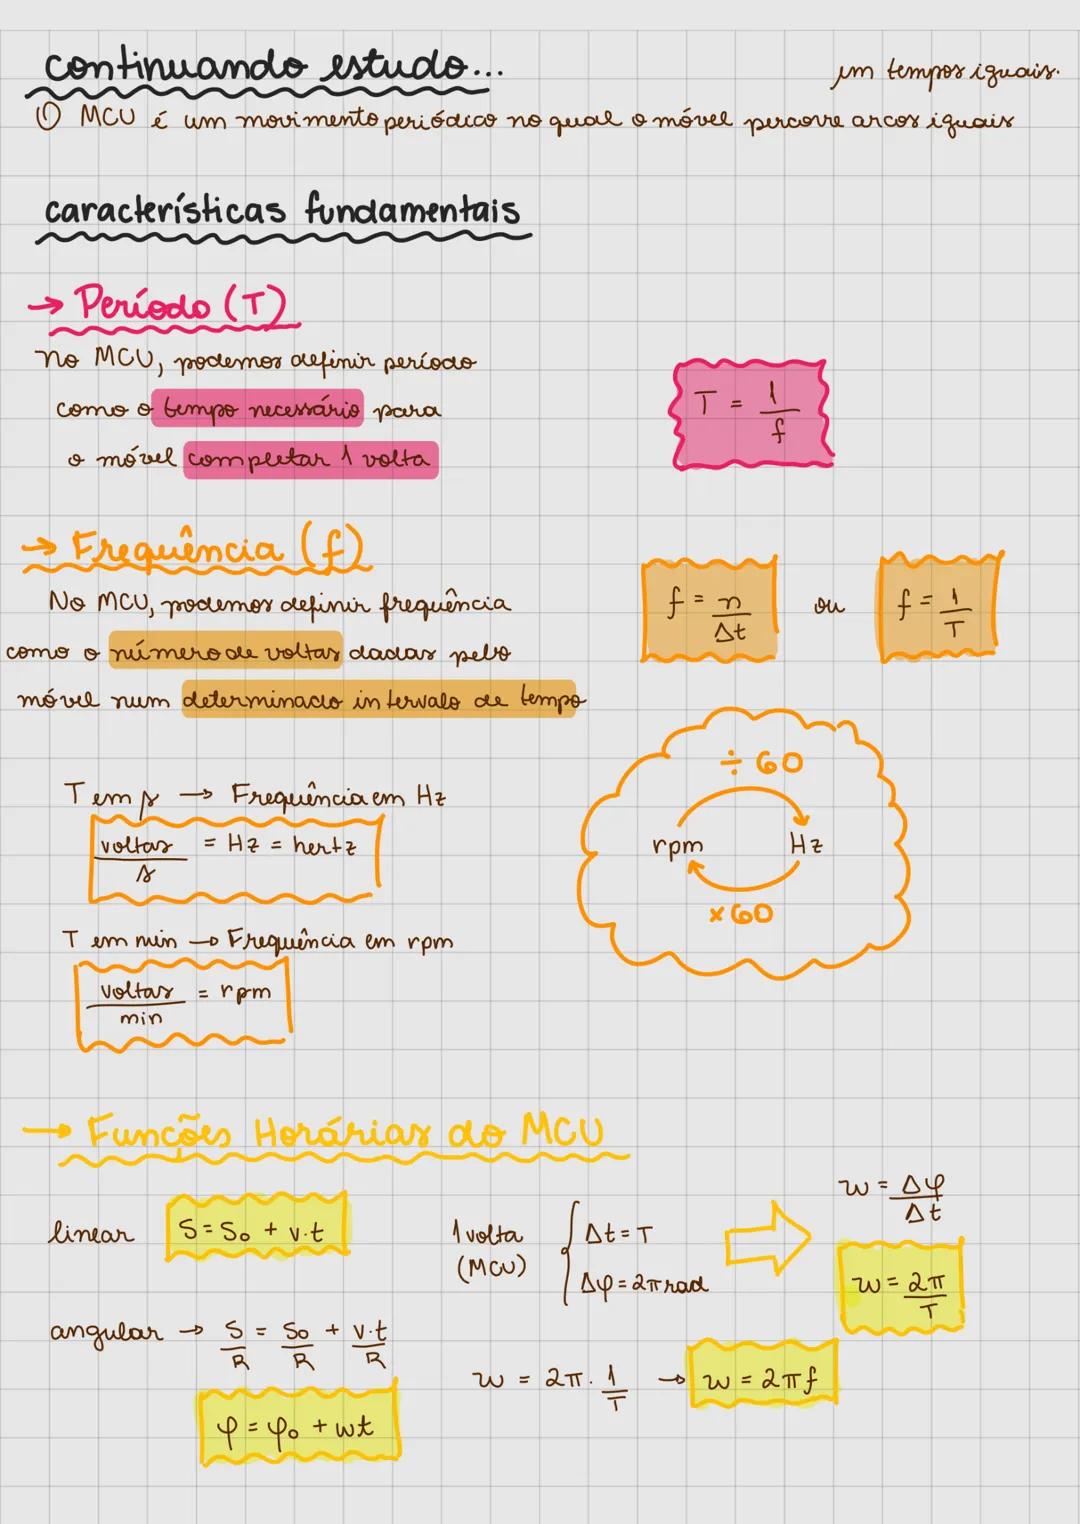 continuando estudo...
① MCU é um movimento periódico no qual o móvel percorre arcos iguais
em tempos iguais.
características fundamentais
→ Período (T)
No MCU, podemos definir período
como o tempo necessário para
o móvel completar 1 volta
T = 1/f
→ Frequência (f)
No MCU, podemos definir frequência
como o número de voltas dadas pelo
móvel num determinado intervalo de tempo
f = n/Δt ou f = 1/T
T em s → Frequência em Hz
voltas/s = Hz = hertz
T em min → Frequência em rpm
voltas/min = rpm
÷ 60
rpm Hz
×60
→ Funções Horárias do MCU
linear S = S₀ + v.t
angular → S/R = S₀/R + v.t/R
φ = φ₀ + wt
1 volta (MCU) { Δt = T
Δφ = 2π rad
w = Δφ/Δt
w = 2π/T
w = 2π . 1/T → w = 2πf